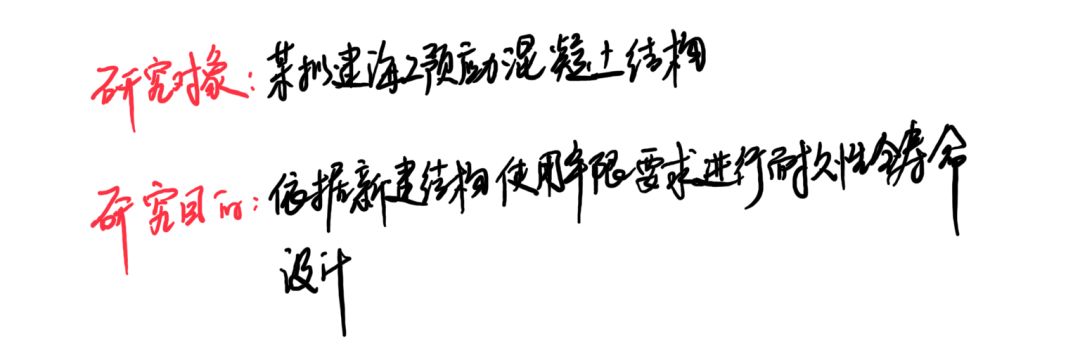 研究对象：某拟建海工预应力混凝土结构
研究目的：依据新建结构使用年限要求进行耐久性全寿命
设计